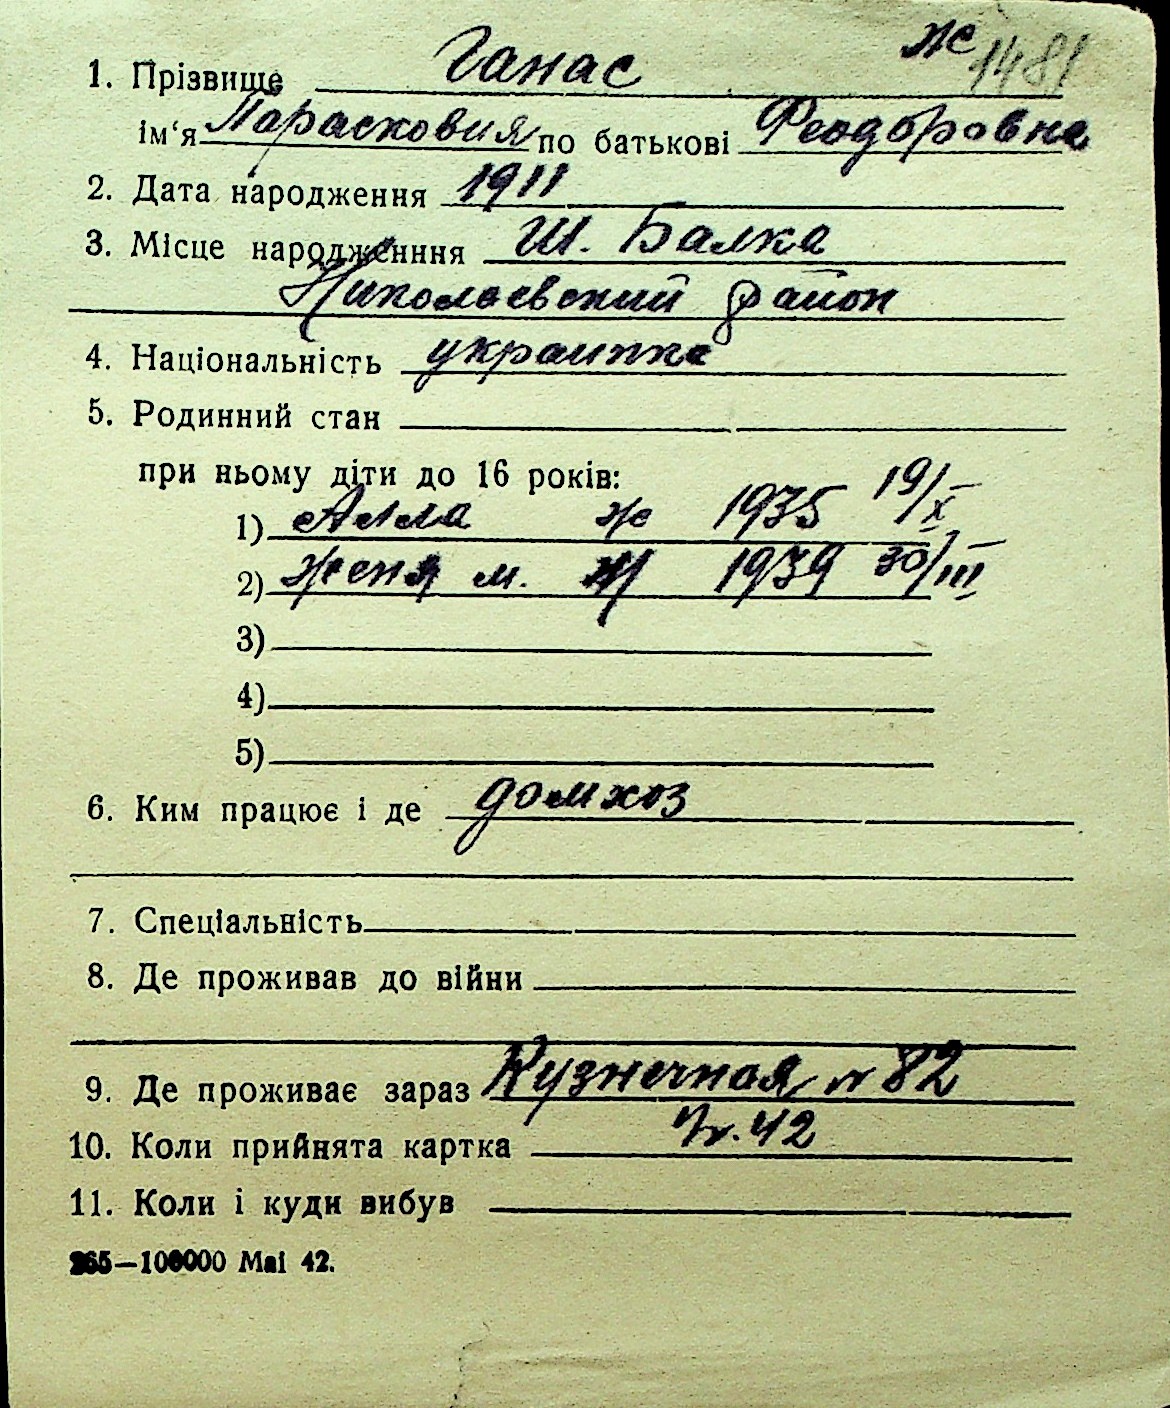 1. Прізвище Ганас ж 1481
ім'я Парасковия по батькові Феодоровна
2. Дата народження 1911
3. Місце народженння Ш. Балка
Николаевский район
4. Національність украинка
5. Родинний стан
при ньому діти до 16 років:
1) Алла ж 1935 19/X
2) Женя м. 1939 30/III
3)
4)
5)
6. Ким працює і де домхоз
7. Спеціальність
8. Де проживав до війни
9. Де проживає зараз Кузнечная № 82
10. Коли прийнята картка 42
11. Коли і куди вибув
265—100000 Маі 42.